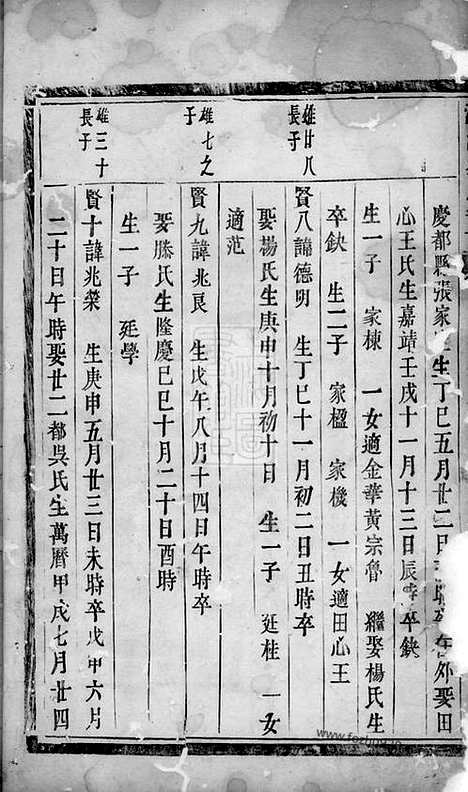 慶都縣張家 生丁巳五月廿二日 時卒在外娶田
心王氏生嘉靖壬戌十一月十三日辰時卒缺
生一子 家棟 一女適金華黃宗魯 繼娶楊氏生
卒缺 生二子 家楹 家機 一女適田心王
雄廿八
長子
賢八諱德明 生丁巳十一月初二日丑時卒
娶楊氏生庚申十月初十日 生一子 廷桂 一女
適范
雄七之
子
賢九諱兆良 生戊午八月十四日午時卒
娶滕氏生隆慶己巳十月二十日酉時
生一子 廷學
雄三十
長子
賢十諱兆榮 生庚申五月廿三日未時卒戊申六月
二十日午時娶廿二都吳氏生萬曆甲戌七月廿四
www.fezhu.io